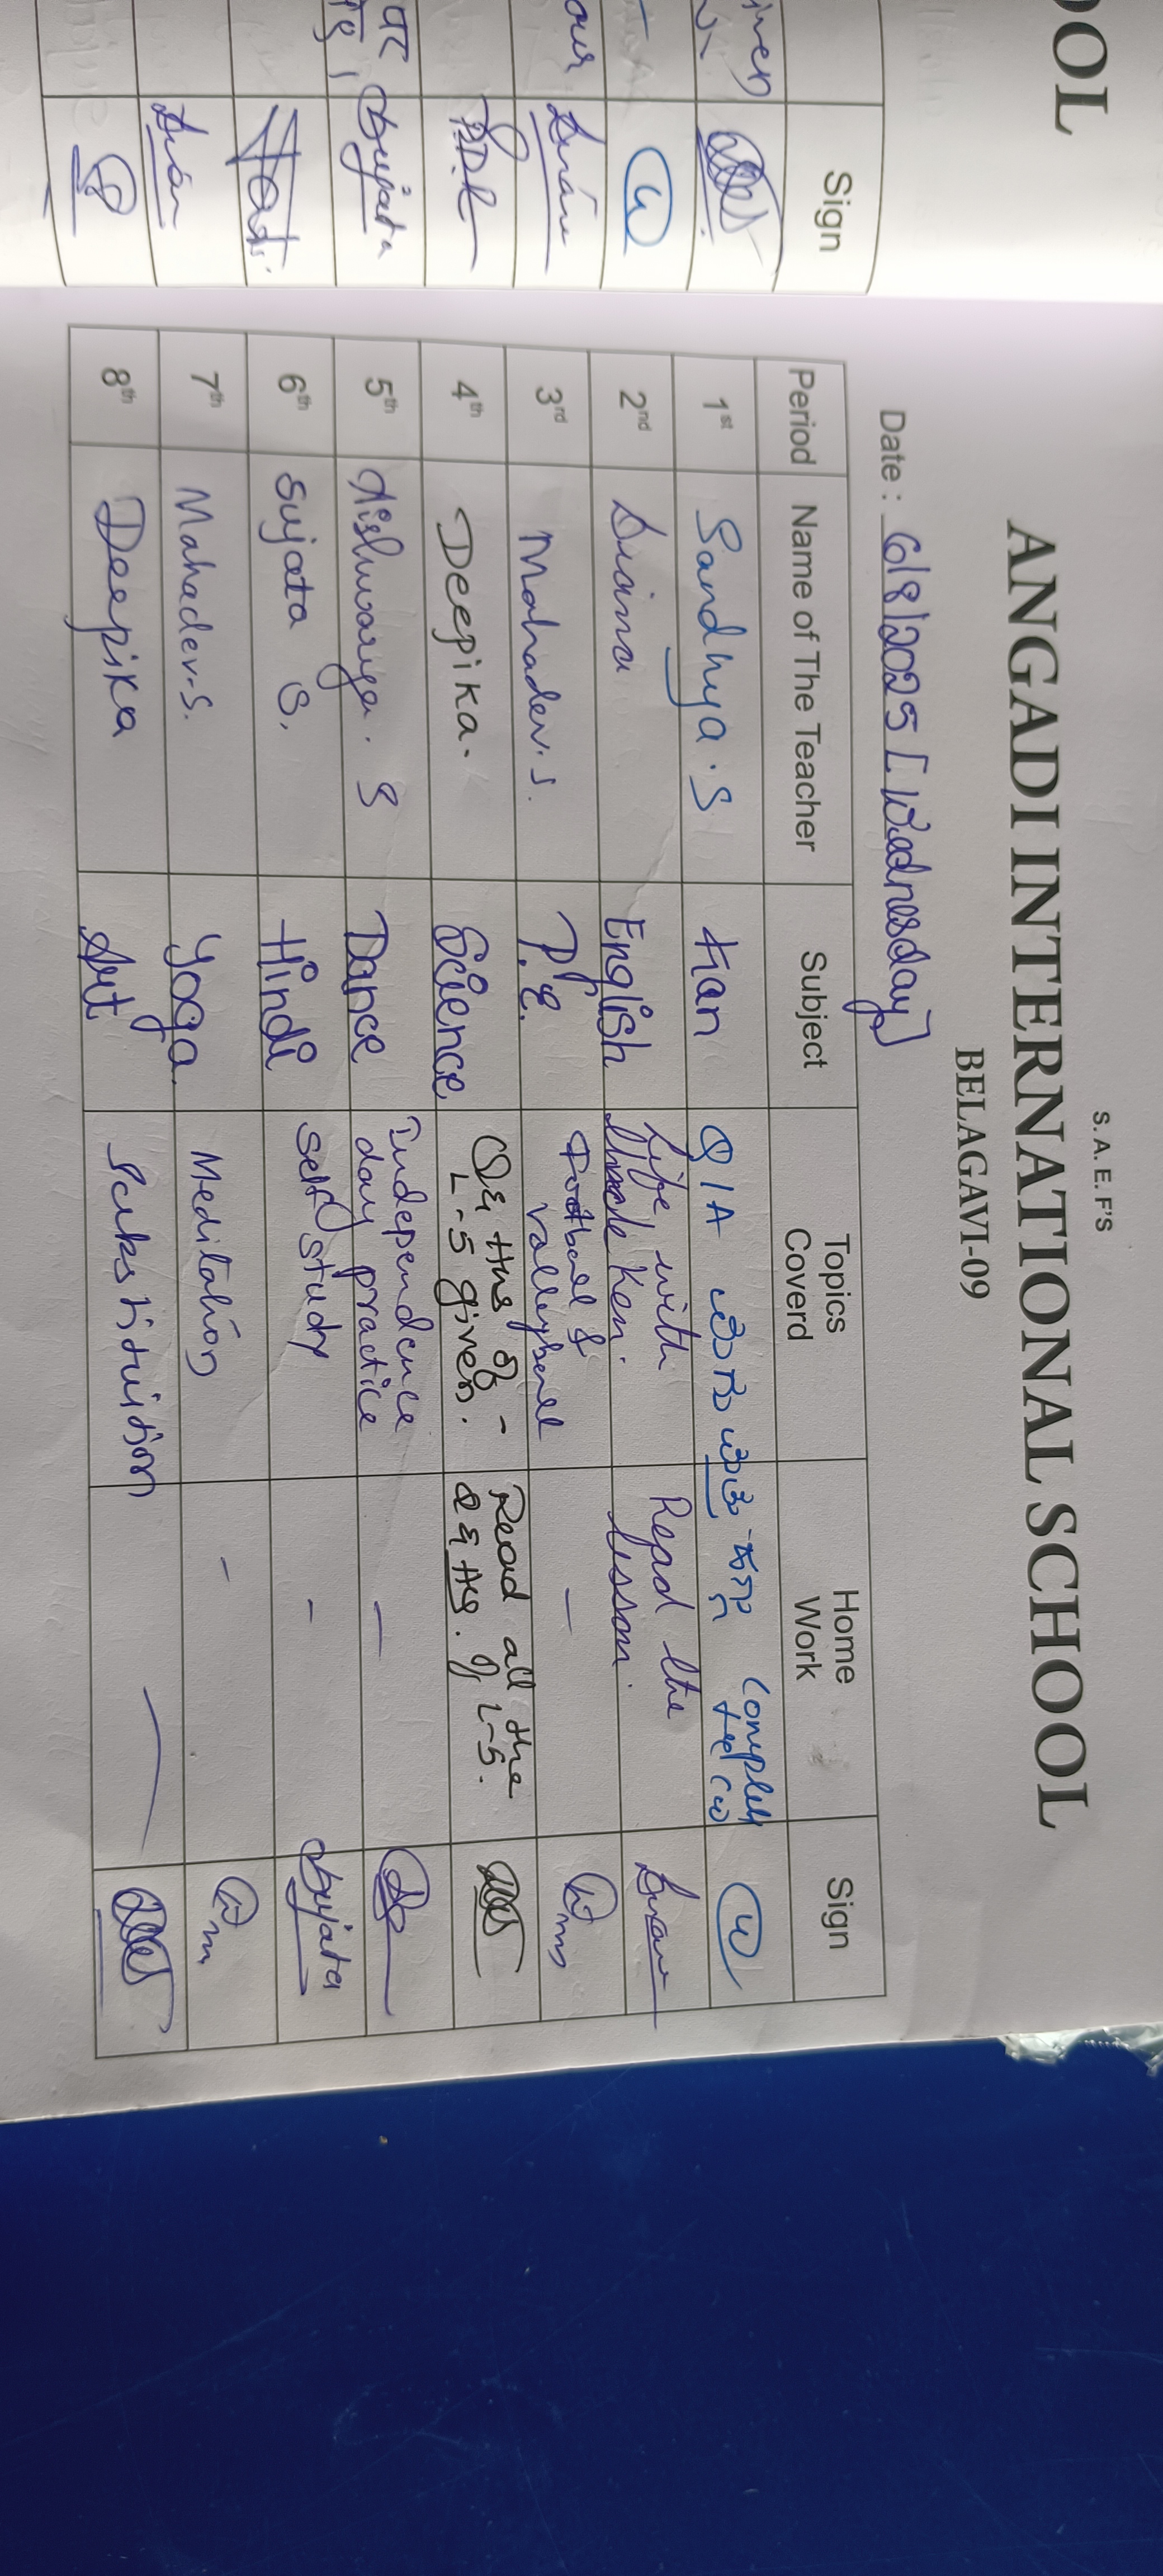 OOL
Sign
Sujata
S. A. E. F'S
ANGADI INTERNATIONAL SCHOOL
BELAGAVI-09
Date : 6/8/2025 [Wednesday]
Period Name of The Teacher Subject Topics Coverd Home Work Sign
1st Sandhya . S Kan Q/A Complete
2nd English Life with Uncle Ken. Read the lesson.
3rd Mahadev.S. P.E. Football & Valleyball —
4th Deepika. Science Q & Ans of L-5 given. - Read all the Q & Ans. of L-5.
5th Aishwarya . S Dance Independence day practice —
6th Sujata S. Hindi self study - Sujata
7th Mahadev.S. Yoga. Meditation -
8th Deepika Art —